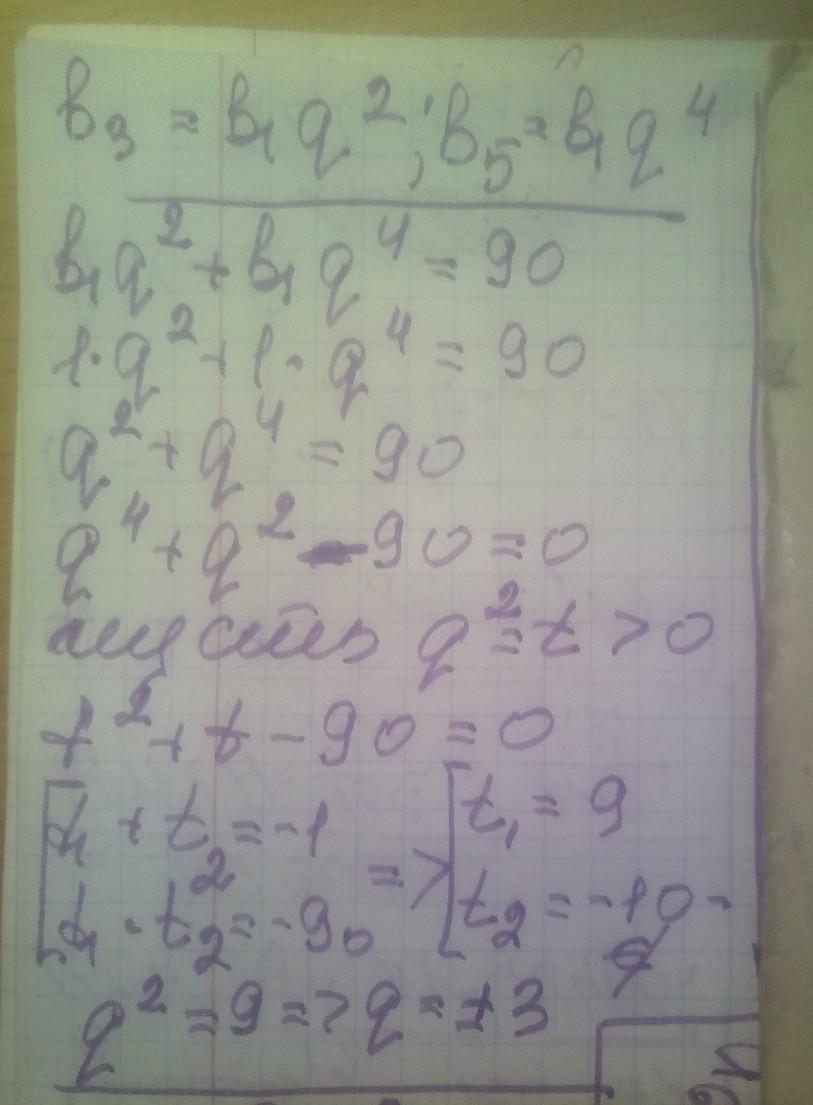 b₃ = b₁q²; b₅ = b₁q⁴
b₁q² + b₁q⁴ = 90
1·q² + 1·q⁴ = 90
q² + q⁴ = 90
q⁴ + q² - 90 = 0
пусть q² = t > 0
t² + t - 90 = 0
[t₁ + t₂ = -1
[t₁ · t₂ = -90
=> [t₁ = 9
[t₂ = -10 -
q² = 9 => q = ±3